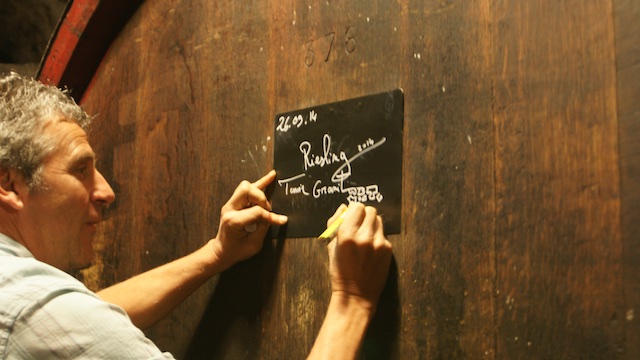 576
26.09.14
Riesling 2014
Granit